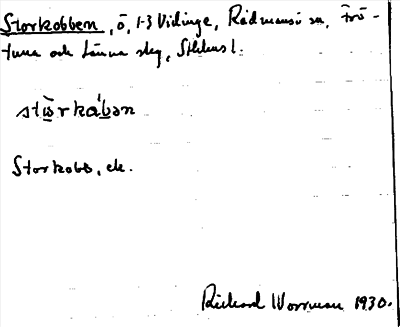 Storkobben, ö, 1-3 Vidinge, Rådmansö sn, Frö-
tuna och Länna slg, Sthlms l.
stω̲rkåb̲ən
Storkobb, ek.
Rickard Worrman 1930.